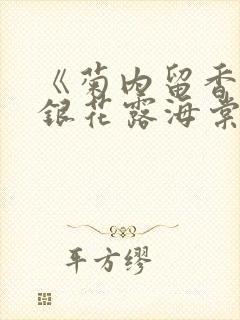 《菊内留香
银花露海棠
平方缪